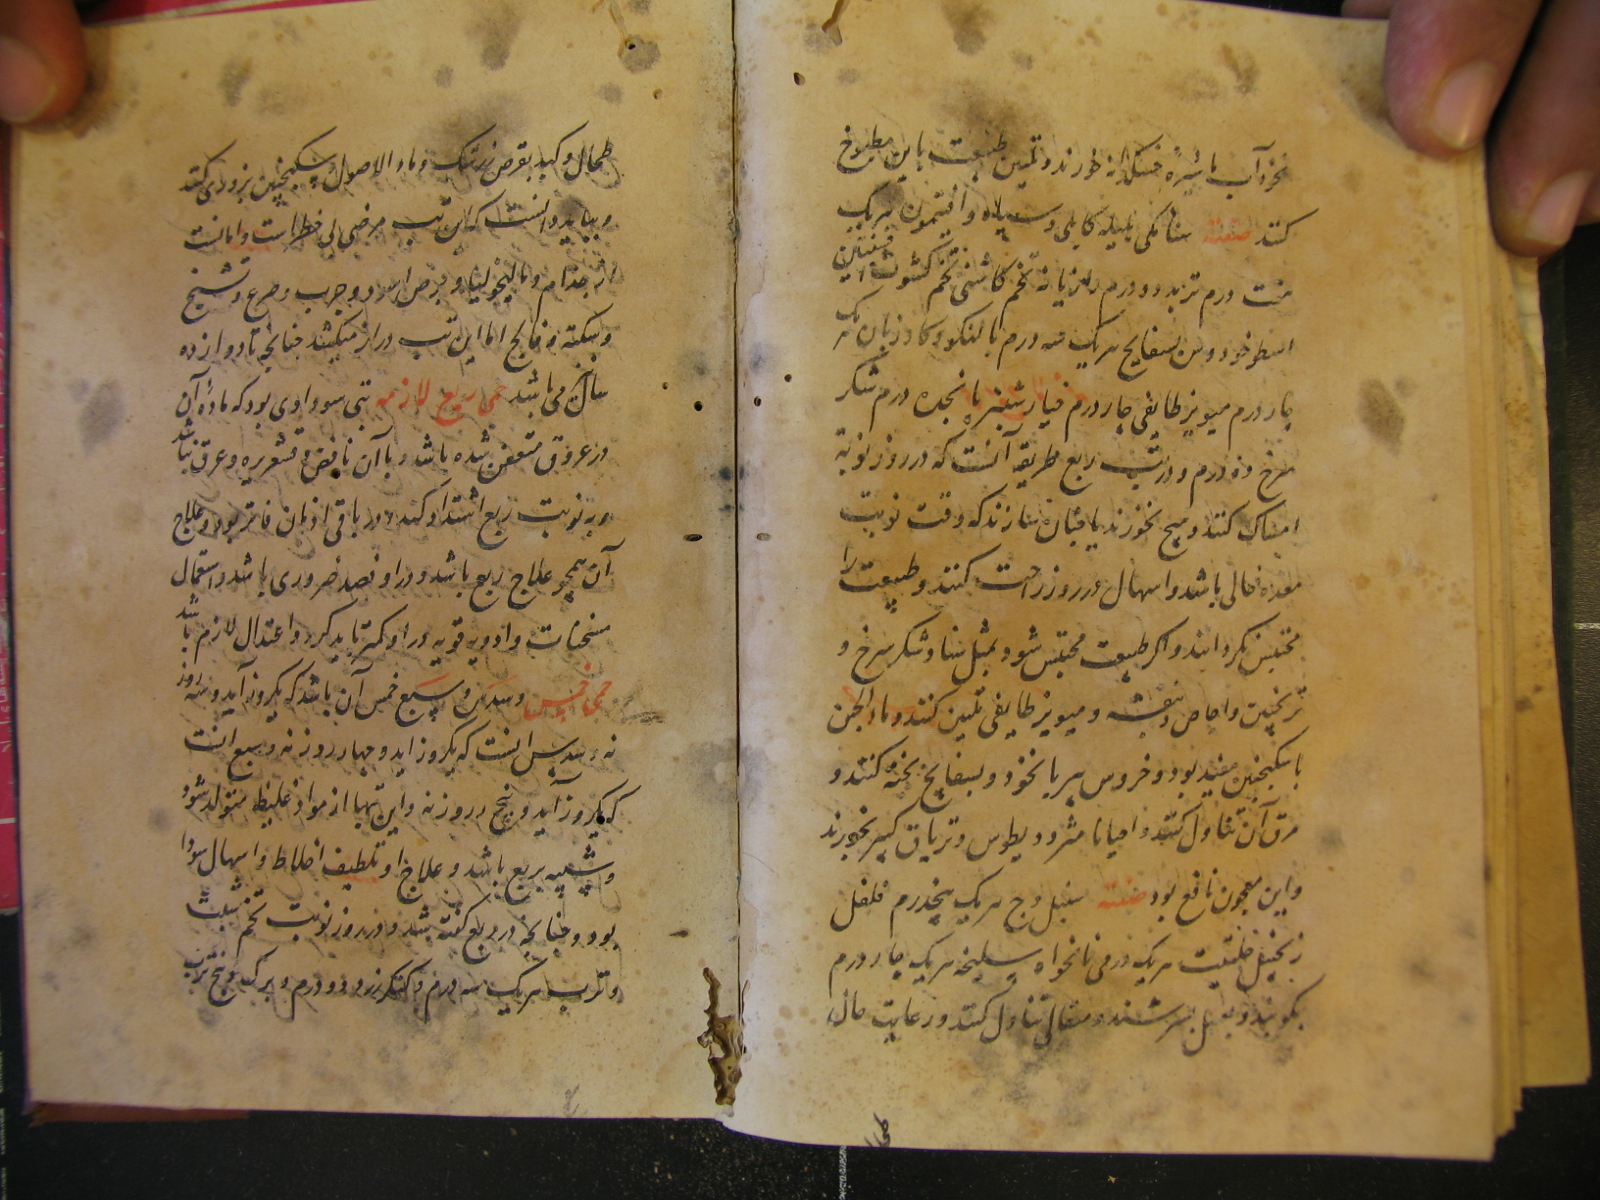 نخودآب با شیره خسکدانه خورند و تلیین طبیعت باین مطبوخ
کنند صفته سنامکی هلیله کابلی و سیاه و افتیمون هریک
هشت درم تربد دو درم رازیانه تخم کاسنی تخم کشوث افسنتین
اسطوخودوس بسفایج هریک سه درم بالنکو و کاوزبان هریک
چار درم میویز طایفی چار درم خیار شنبر پانجده درم شکر
سرخ ده درم و در تب ربع طریقه آنست که در روز نوبة
امساک کنند و هیچ نخورند یا چنان سازند که وقت نوبت
معده خالی باشد و اسهال در روز راحت کنند و طبیعت را
محتبس نکردانند و اکر طبیعت محتبس شود بمثل سنا و شکر سرخ و
ترنجبین و اجاص و بنفشه و میویز طایفی تلیین کنند و ماء الجبن
با سکنجبین مفید بود و خروس پیر با نخود و بسفایج پخته کنند و
مرق آن تناول کنند و احیانا مثرودیطوس و تریاق کبیر بخورند
و این معجون نافع بود صفته سنبل وج هریک پنجدرم فلفل
زنجبیل حلتیت هریک درمی نانخواه سلیخه هریک چار درم
بکوبند و بعسل بسرشند دو مثقال تناول کنند و رعایت حال
طحال
طحال و کبد بقرص زرشک و ماء الاصول و سکنجبین بزودی کنند
و بباید دانست که این تب مرضی بی خطر است و امانست
از جذام و مالیخولیا و برص اسود و جرب و صرع و تشنج
و سکته و فالج اما این تب دراز میکشد چنانچه تا دوازده
سال می باشد حمی ربع لازمه تبی سوداوی بود که ماده آن
در عروق متعفن شده باشد و با آن نافض و قشعریره و عرق نباشد
و به نوبت ربع اشتداد کند و در باقی ازمان فاتر بود و علاج
آن همچو علاج ربع باشد و درو فصد ضروری باشد و استعمال
مسخنات و ادویه قویه درو کمتر باید کرد و اعتدال لازم باشد
حمی خمس و سدس و سبع خمس آن باشد که یکروز آید و سه روز
نه و سدس انست که یکروز اید و چهار روز نه و سبع انست
که یکروز آید و پنج روز نه و این تبها از مواد غلیظ متولد شود
و شبیه بربع باشد و علاج او تلطیف اخلاط و اسهال سودا
بود و چنانچه در ربع کفته شد و در روز نوبت تخم شبث
و ترب هریک سه درم و کنکرزد دو درم و برک و بیخ ترب